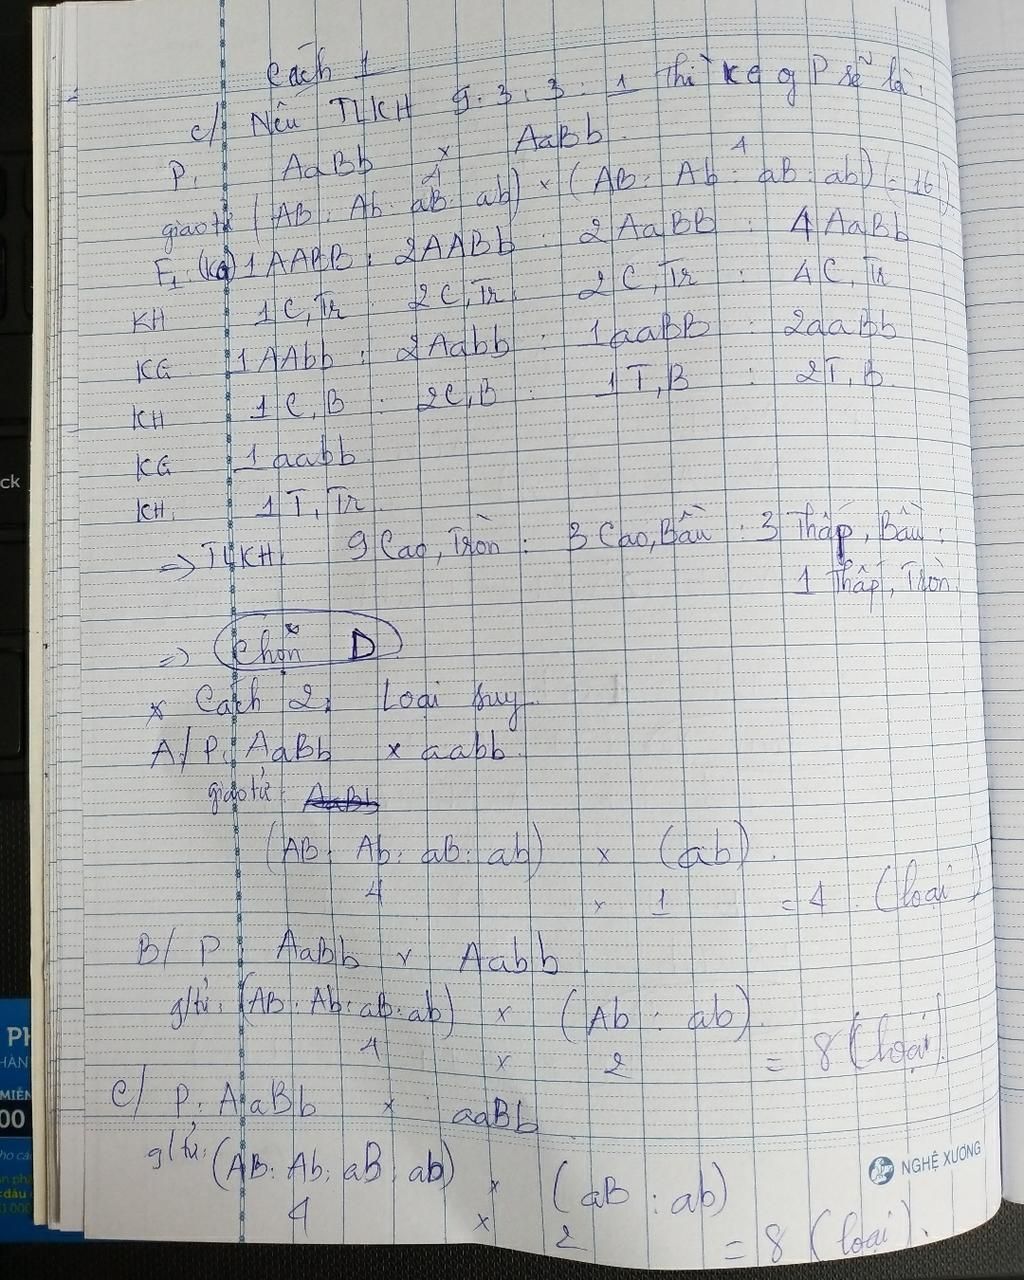 Cách 1
c/ Nếu TLKH 9:3:3:1 Thì KG g P sẽ là:
P: AaBb x AaBb
4 4
giao tử (AB: Ab: aB: ab) x (AB: Ab: aB: ab) (=16)
F1: (KG) 1AABB: 2AABb: 2AaBB: 4AaBb
KH 1C,Tr: 2C,Tr: 2C,Tr: 4C,Tr
KG 1AAbb: 2Aabb: 1aaBB: 2aaBb
KH 1C,B: 2C,B: 1T,B: 2T,B.
KG 1aabb
KH: 1T,Tr
=> TLKH: 9 Cao, Tròn: 3 Cao, Bầu: 3 Thấp, Bầu:
1 Thấp, Tròn
=> Chọn D
* Cách 2: Loại suy
A/ P: AaBb x aabb
giao tử: AaBb
(AB: Ab: aB: ab) x (ab).
4 x 1 = 4 (loại)
B/ P: AaBb x Aabb
g/tử: (AB: Ab: aB: ab) x (Ab: ab).
4 x 2 = 8 (loại)
C/ P: AaBb x aaBb
g/tử: (AB: Ab: aB: ab) x (aB: ab)
4 x 2 = 8 (loại).
NGHỆ XƯƠNG
ck
MIỄN
00